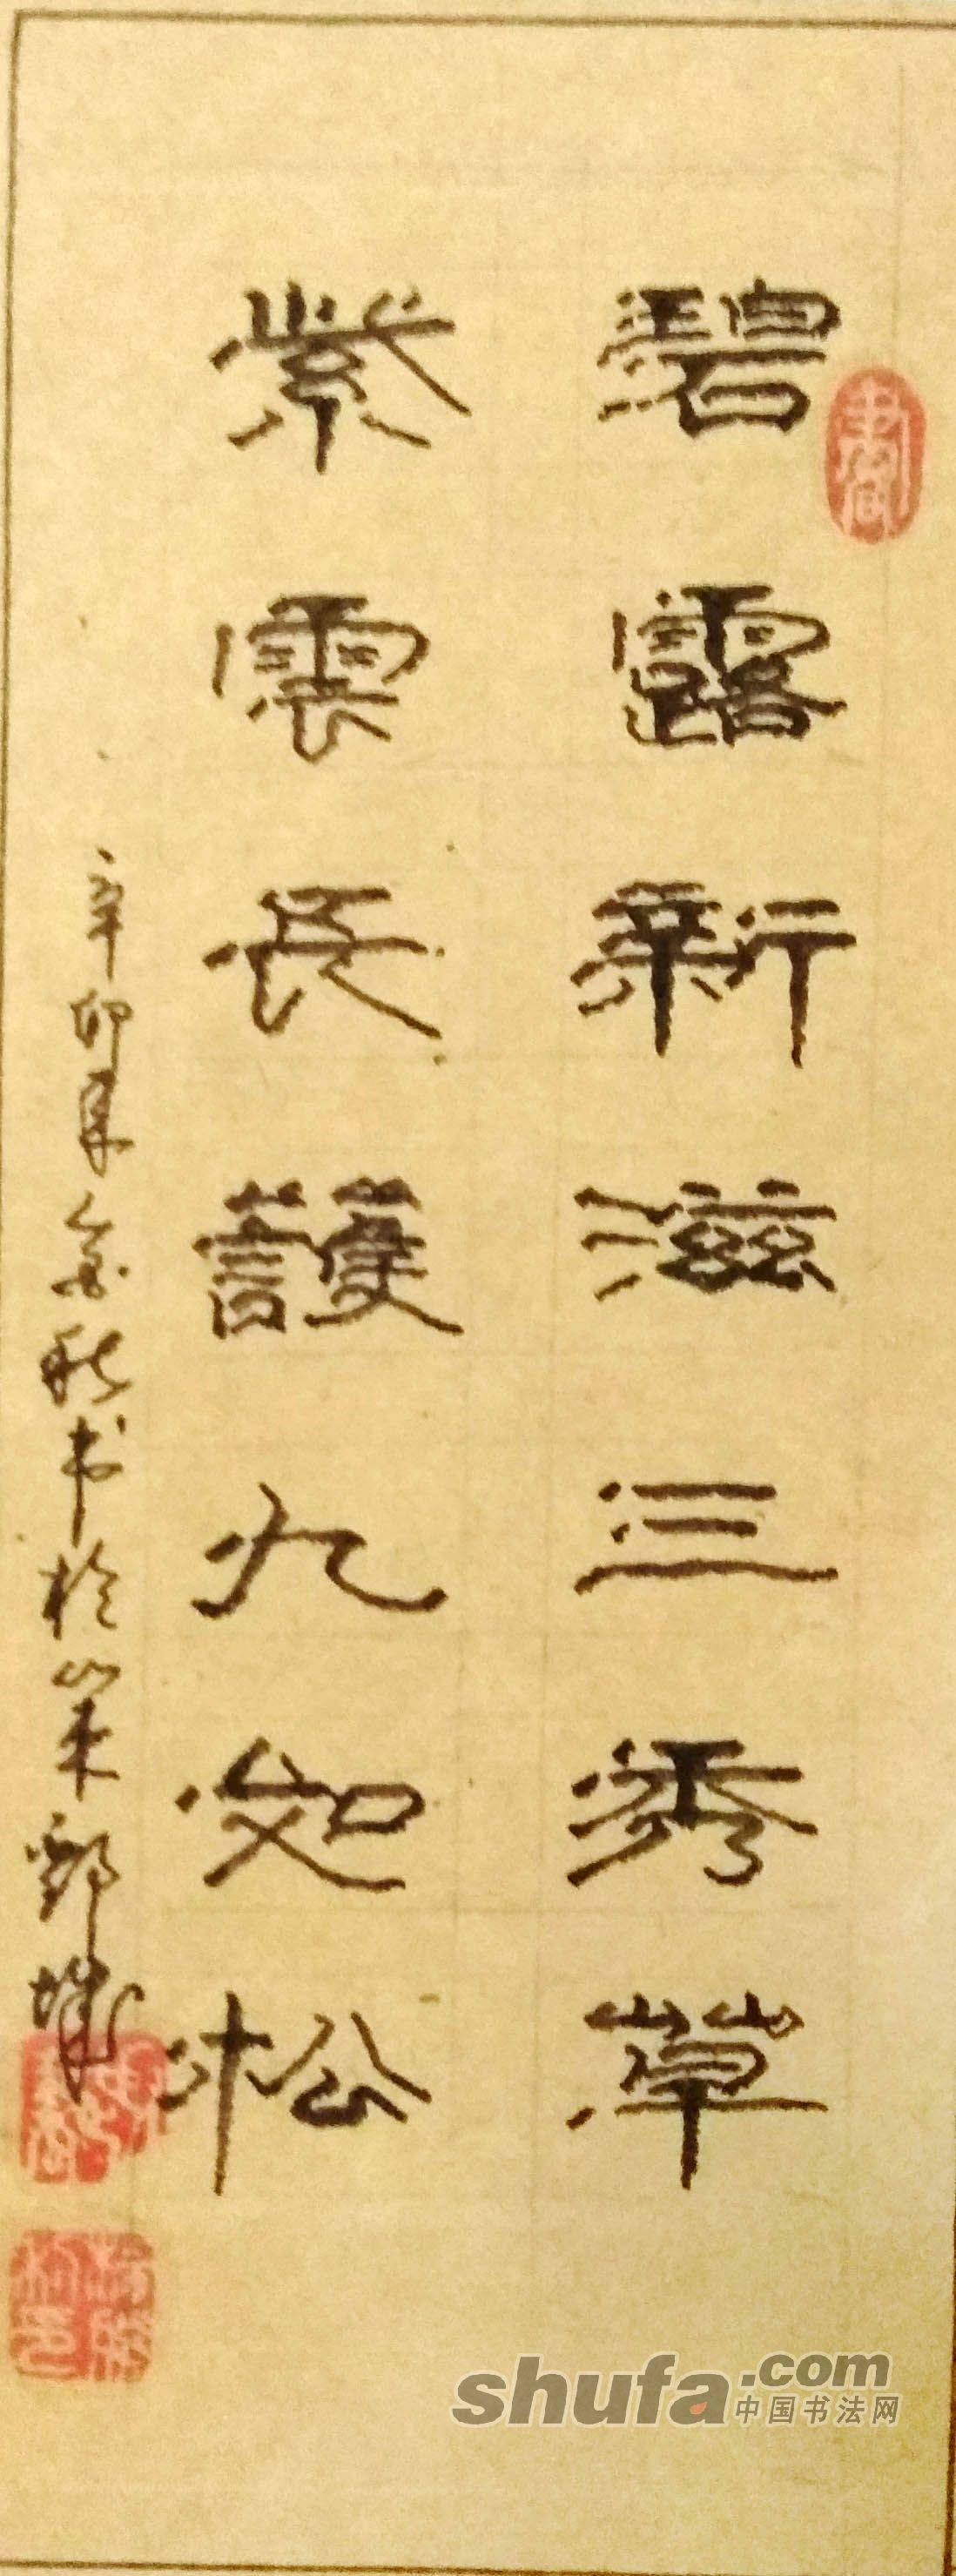 碧露新滋三秀草
紫雲长護九如松
辛卯年金秋书於山东鄄城
shufa.com
中国书法网